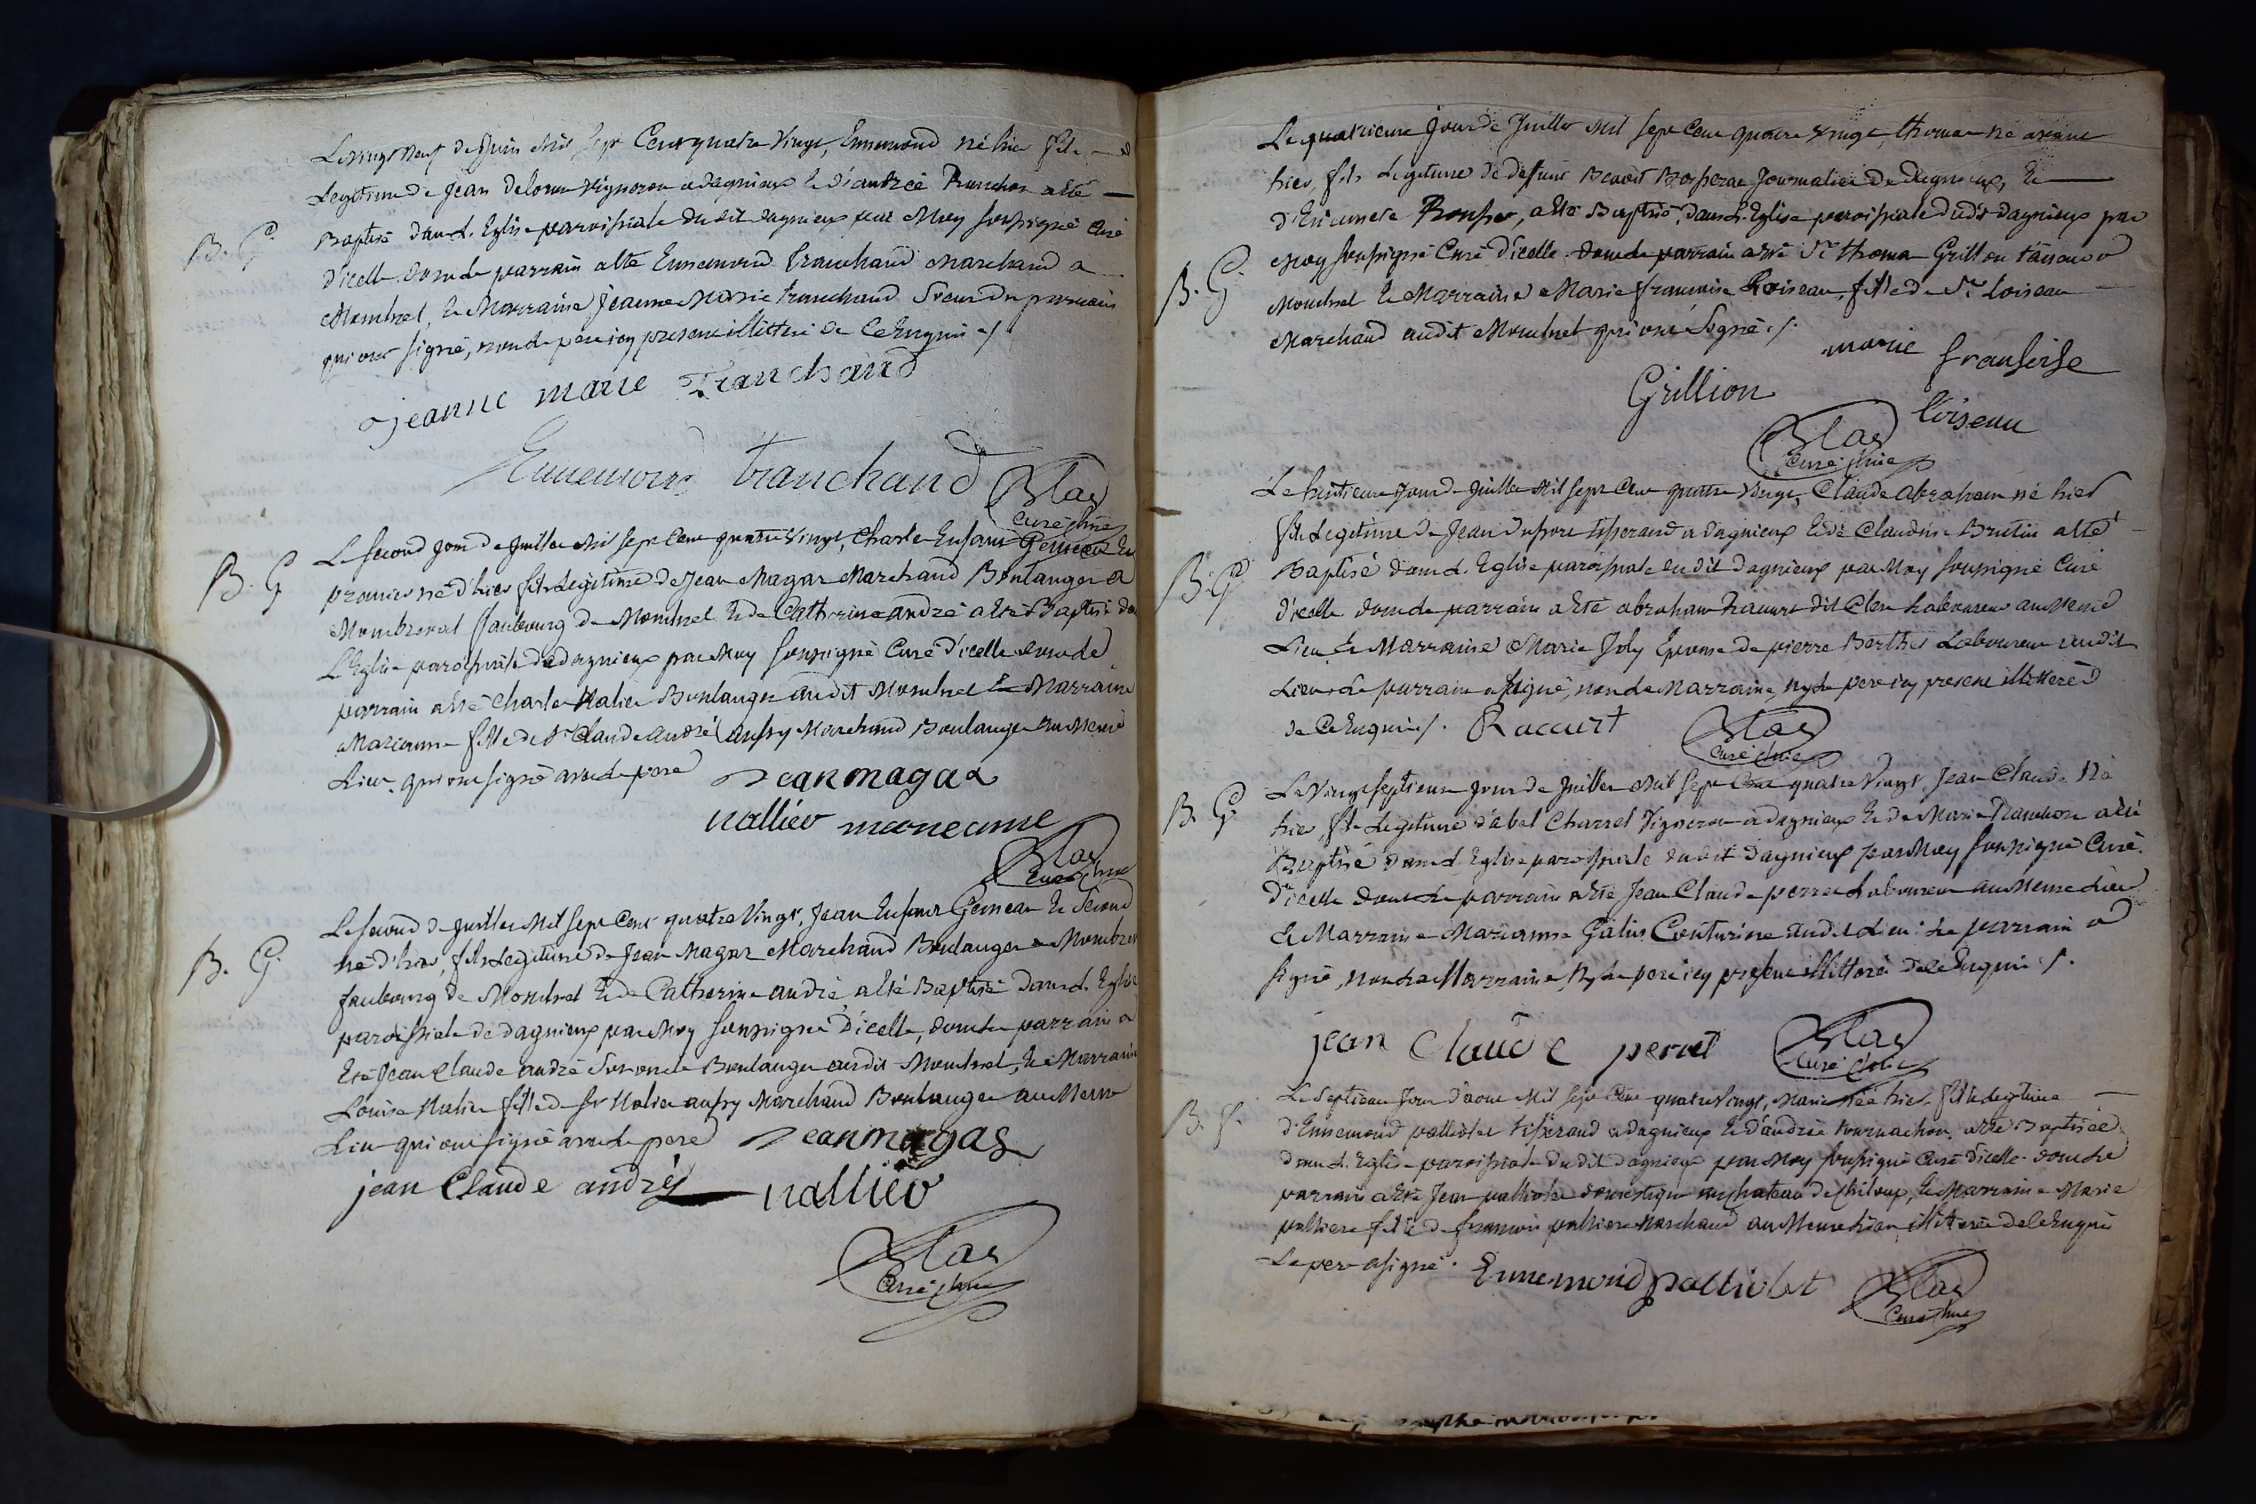 Le vingt Neuf de Juin Mil Sept Cent quatre Vingt, Ennemond né hier fils
Legitime de Jean Delorme Vigneron a dagnieux & d'andrée Ranchon a êté
B. G.
Baptisé dans L'Eglise paroissiale dudit dagnieux par Moy soussigné Curé
d'icelle dont le parrain a êté Ennemond tranchand Marchand a
Montluel, & la Marraine Jeanne Marie tranchand Soeur du parrain
qui ont signé, non le pere icy present illitteré de ce Enquis ./.
jeanne marie Tranchand
Ennemond tranchand
Blas
Curé
Le second jour de Juillet Mil Sept Cent quatre Vingt, Charle Enfant Gemeau &
B. G
premier né d'hier fils Legitime de Jean Magat Marchand Boulanger a
faubourg de Montluel & de Catherine andré a êté Baptisé dans
L'Eglise paroissiale de dagnieux par Moy soussigné Curé d'icelle dont le
parrain a êté Charle Nalier Boulanger audit Montluel & la Marraine
Marianne fille de Sr Claude andré aussy Marchand Boulanger au Meme
Lieu qui ont signé avec le pere
Jean magat
nallier marianne
Blas
Curé
Le second de Juillet Mil Sept Cent quatre Vingt, Jean Enfant Gemeau & Second
B. G.
né d'hier, fils Legitime de Jean Magat Marchand Boulanger a
faubourg de Montluel & de Catherine andré, a êté Baptisé dans L'Eglise
paroissiale de dagnieux par Moy soussigné d'icelle, dont le parrain a
êté Jean Claude andré Boulanger audit Montluel, & la Marraine
Louise Nalier fille de Sr Nalier aussy Marchand Boulanger au Meme
Lieu qui ont signé avec le pere
Jean magat
jean Claude andré
nallier
Blas
Curé
Le quatrieme Jour de Juillet Mil Sept Cent quatre Vingt, thomas né avant
hier, fils Legitime de defunt Benoit Journalier de Dagnieux, &
a êté Baptisé, dans L'Eglise paroissiale dudit dagnieux par
B. G.
Moy soussigné Curé d'icelle dont le parrain a êté Sr thomas Grillon tanneur
Montluel & la Marraine Marie francoise Loiseau, fille de Sr Loiseau
Marchand audit Montluel qui ont Signé ./.
marie franseise
Grillion
loiseau
Blas
Curé
Le huitieme Jour de Juillet Mil Sept Cent quatre Vingt, Claude abraham né hier
fils Legitime de Jean Duport tisserand a dagnieux & de Claudine a êté
B. G.
Baptisé dans L'Eglise paroissiale du dit dagnieux par Moy soussigné Curé
d'icelle dont le parrain a êté abraham Racurt dit laboureur au Meme
Lieu & la Marraine Marie Joly Epouse de pierre Berthet Laboureur audit
Lieu Le parrain a signé, non la Marraine, ny le pere icy present illitteré
de ce Enquis ./.
Racurt
Blas
Curé
Le Vingt septieme jour de Juillet Mil Sept Cent quatre Vingt, Jean Claude Né
B. G.
hier, fils Legitime d'abel Charvet Vigneron a dagnieux & de Marie Ranchon a êté
Baptisé dans L'Eglise paroissiale dudit dagnieux par Moy soussigné Curé
d'icelle dont le parrain a êté Jean Claude perret Laboureur au Meme Lieu
& Marraine Marianne Couturiere audit Lieu : Le parrain a
signé, non la Marraine Ny le pere icy present illitteré de ce Enquis ./.
jean Claude peret
Blas
Curé
Le Septieme Jour d'aout Mil Sept Cent quatre Vingt, Marie Née hier fille Legitime
B. f.
d'Ennemond palliolet tisserand a dagnieux & d'andrée a êté Baptisée
dans L'Eglise paroissiale du dit dagnieux par Moy soussigné Curé d'icelle dont le
parrain a êté Jean palliolet domestique au chateau de & la Marraine Marie
fille de francois Marchand au Meme Lieu illitteré de ce Enquis
Le pere a signé.
Ennemond palliolet
Blas
Curé